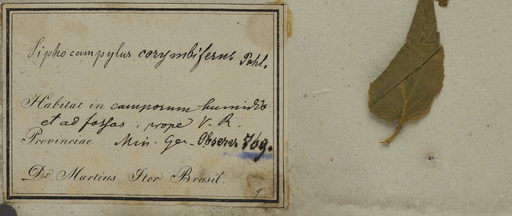 Siphocampylus corymbiferus Pohl.
Habitat in camporum humidis
et ad fossas, prope V. R.
Provinciae Min. Ger. Observ. 769.
Dr. Martius Iter Brasil.